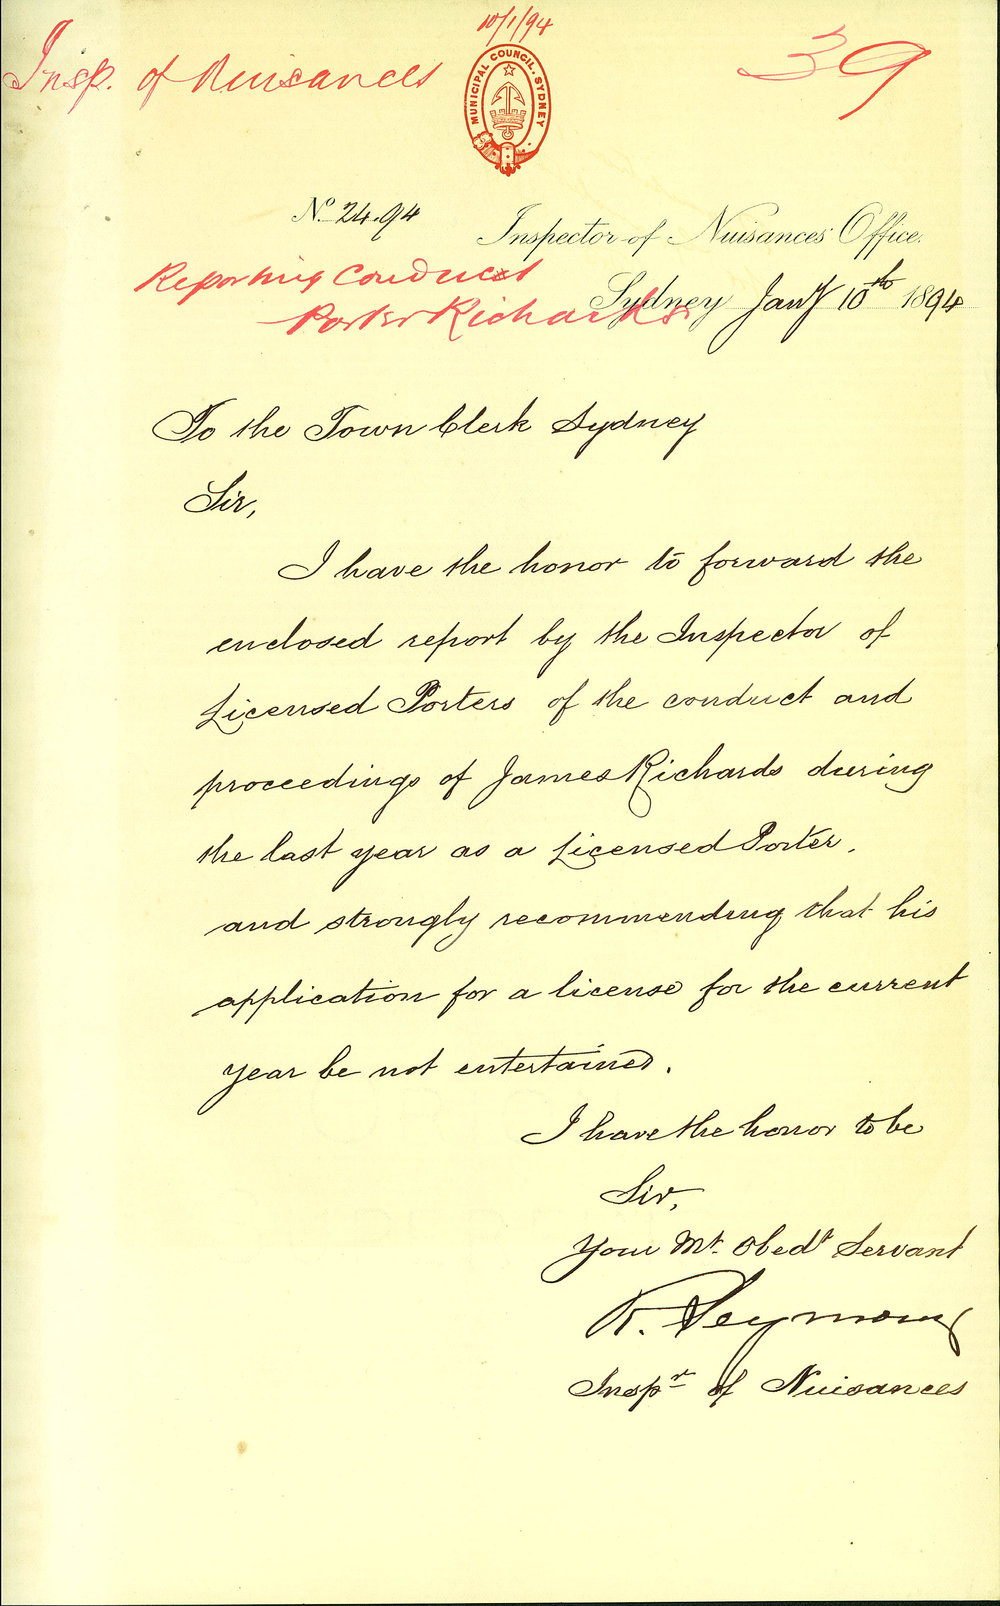 10/1/94
Insp. of Nuisances
39
MUNICIPAL COUNCIL. SYDNEY
No. 24.94
Inspector of Nuisances Office.
Reporting Conduct
Porter Richards
Sydney Jany 10th 1894
To the Town Clerk Sydney
Sir,
I have the honor to forward the
enclosed report by the Inspector of
Licensed Porters of the conduct and
proceedings of James Richards during
the last year as a Licensed Porter,
and strongly recommending that his
application for a license for the current
year be not entertained.
I have the honor to be
Sir,
Your Mt. Obedt Servant
R. Seymour
Inspr of Nuisances